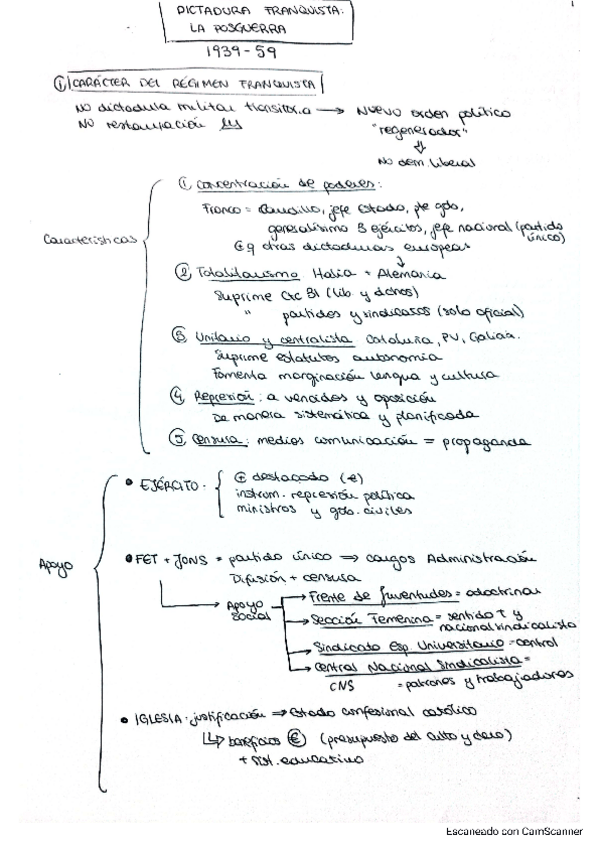 1
DICTADURA FRANQUISTA:
LA POSGUERRA
1939-59
① CARÁCTER DEL RÉGIMEN FRANQUISTA
NO dictadura militar transitoria → NUEVO orden político
NO restauración
"regenerador"
⇓
No dem. liberal
Características
① Concentración de poderes:
Franco = Caudillo, jefe Estado, pte gob,
generalísimo 3 ejércitos, jefe nacional (partido único)
otras dictaduras europeas
② Totalitarismo Italia = Alemania
Suprime Ctc 31 (lib. y dchos)
" partidos y sindicatos (solo oficial)
③ Unitario y centralista Cataluña, PV, Galicia.
Suprime estatutos autonomía
Fomenta marginación lengua y cultura
④ Represión: a vencidos y oposición
De manera sistemática y planificada
⑤ Censura: medios comunicación = propaganda
Apoyo
• EJÉRCITO:
⊕ destacado (€)
instrum. represión política
ministros y gob. civiles
• FET + JONS = partido único ⇒ cargos Administración
Difusión + censura
→ Apoyo social
→ Frente de Juventudes = adoctrinar
→ Sección Femenina = sentido T y nacionalsindicalista
→ Sindicato Esp. Universitario = control
→ Central Nacional Sindicalista =
CNS = patronos y trabajadores
• IGLESIA: justificación ⇒ Estado confesional católico
↳ beneficios € (presupuesto del culto y clero)
+ sist. educativo
Escaneado con CamScanner